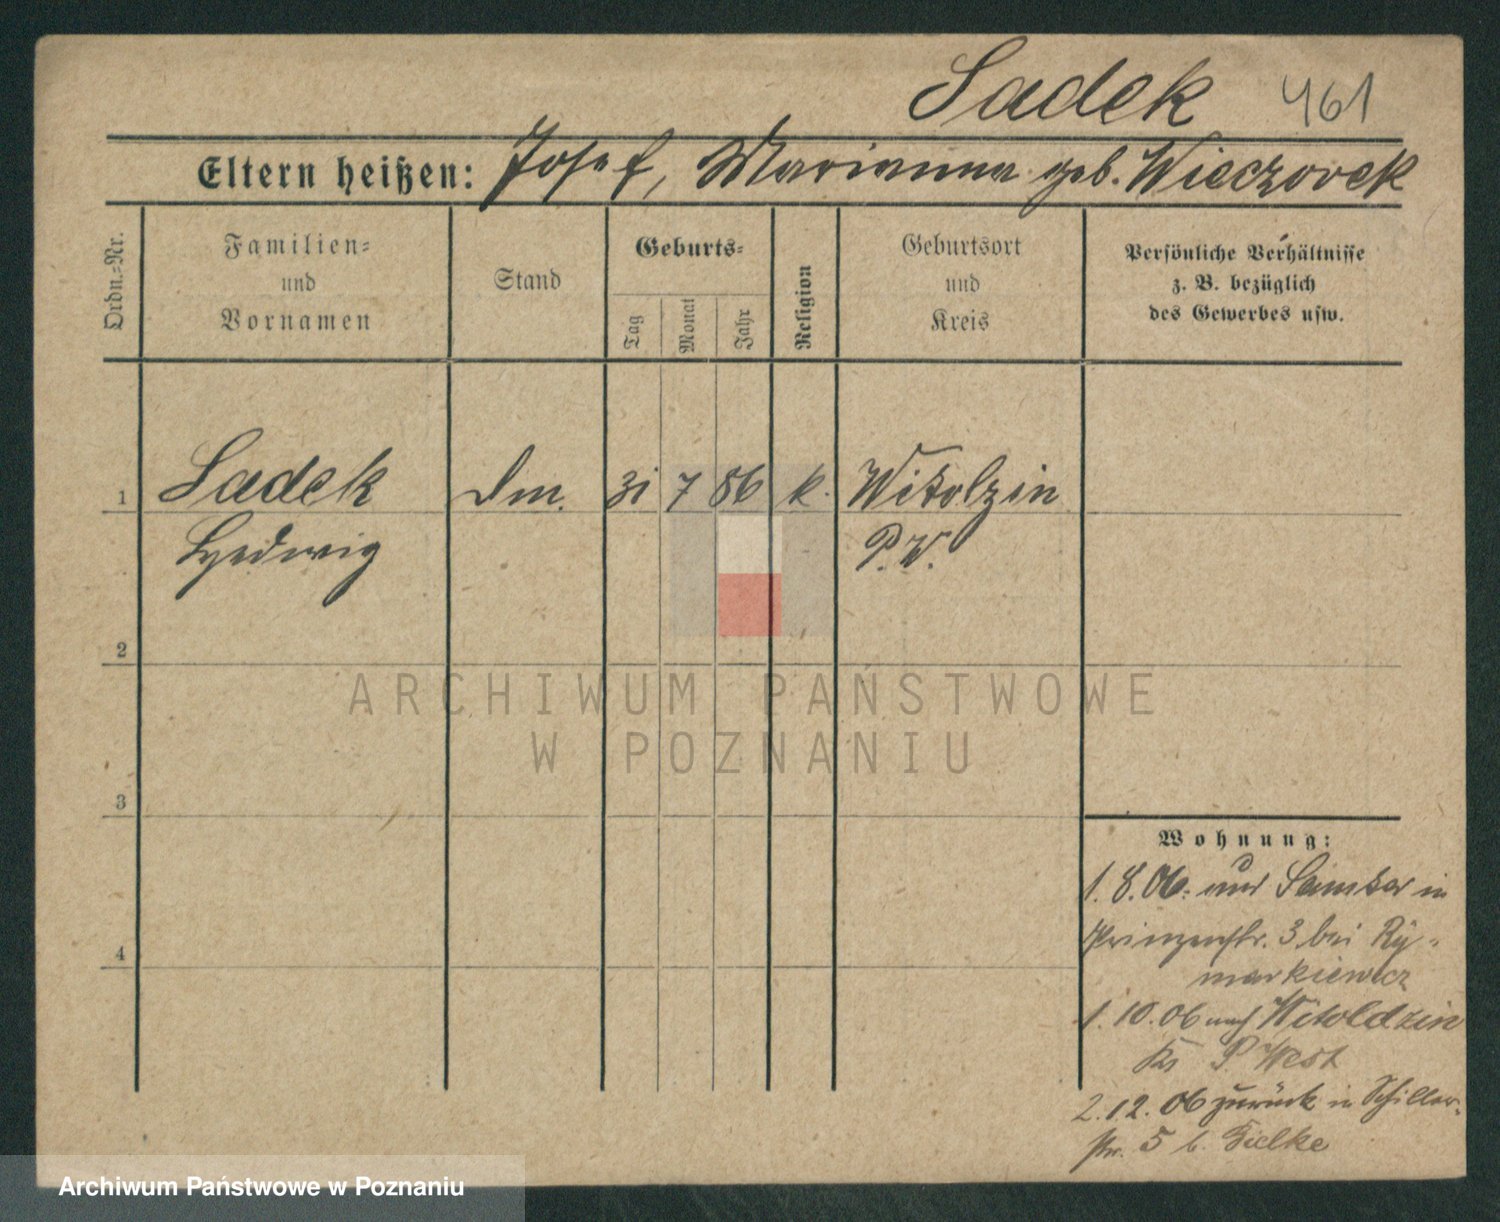 Sadek 461
Eltern heißen: Josef, Marianna geb. Wieczorek
Ordn.-Nr.
Familien-
und
Vornamen
Stand
Geburts-
Tag
Monat
Jahr
Religion
Geburtsort
und
Kreis
Persönliche Verhältnisse
z. B. bezüglich
des Gewerbes usw.
1 Sadek Dm. 31 7 86 k. Witolzin
Hedwig P. W.
2
3
4
ARCHIWUM PAŃSTWOWE
W POZNANIU
Wohnung:
1. 8. 06. aus Samter in
Prinzenstr. 3 bei Ry-
markiewicz
1. 10. 06 nach Witoldzin
Krs P. West
2. 12. 06 zurück in Schiller-
str. 5 b. Zielke
Archiwum Państwowe w Poznaniu